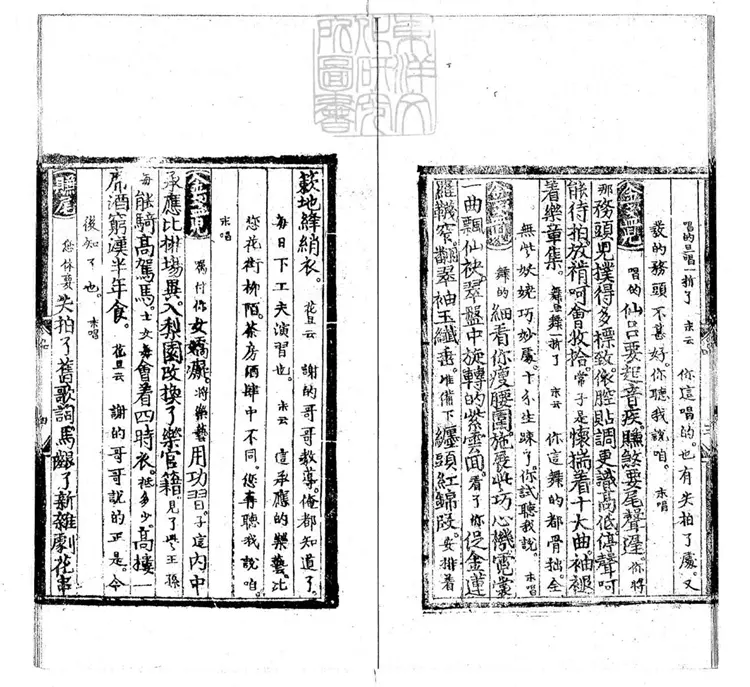 唱的旦唱一折了 末云 你這唱的。也有失拍了處。又
發的務頭不甚好。你聽我說咱。 末唱
金盞兒 唱的仙呂要起音疾。賺煞要尾聲遲。你將
那務頭兒撲得多標致。依腔貼調更識高低。停聲呵
能待拍。放稍呵會收拾。常子是懷揣着十大曲。袖褪
着樂章集。 舞旦舞一折了 末云 你這舞的都骨拙。全
無些妖娆巧妙處。十分生踈了。你試聽我說。 末唱
金盞兒 舞的細看你瘦腰圍。施展些巧心機。霓裳
一曲飄仙袂。翠盤中旋轉的紫雲囬。看了你促金蓮
羅襪窄。翻翠袖玉纖垂。准備下纏頭紅錦段。安排着
簌地絳綃衣。 花旦云 謝的哥哥教導俺都知道了。
每日下工夫演習也。 末云 這承應的樂藝。比
您花街柳陌。茶房酒肆中不同。您再聽我說咱。
末唱
金盞兒 囑付你女嬌癡。將樂藝用功習。子這內中
承應比排場異。入梨園改換了樂官籍。見了些王孫
每能騎高駕馬。士女每會着四時衣。抵多少高樓一
席酒。窮漢半年食。 花旦云 謝的哥哥說的正是。今
後知了也。 末唱
賺尾 您休要失拍了舊歌詞。馬齦了新雜劇。花串
東洋文化研究所圖書